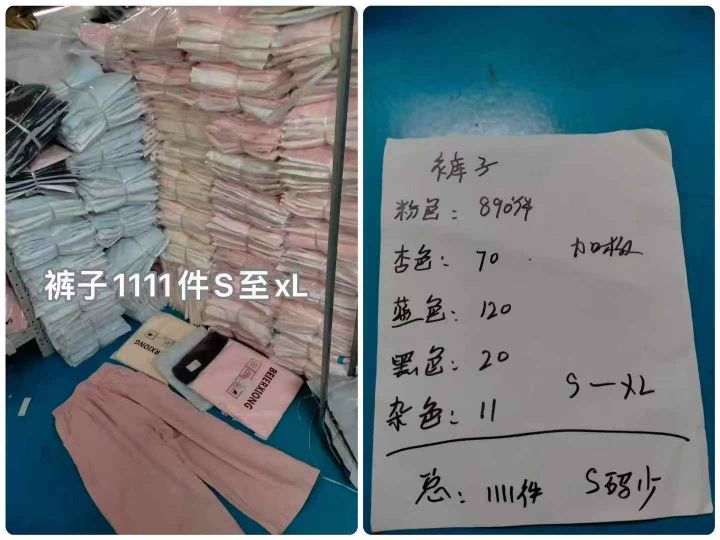 裤子1111件S至xL
RXIONG
BEIERXIONG
裤子
粉色：890件
杏色：70
加板
蓝色：120
黑色：20
S—XL
杂色：11
总：1111件 S码少